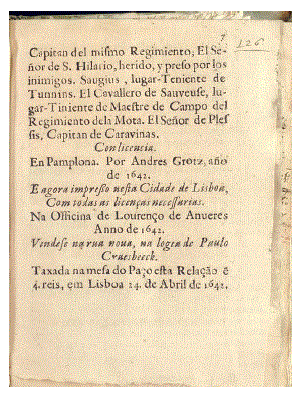 7
126
Capitan del mismo Regimiento, El Se-
ñor de S. Hilario, herido, y preso por los
inimigos. Saugius, lugar-Teniente de
Tunnins. El Cavallero de Sauveuse, lu-
gar-Tiniente de Maestre de Campo del
Regimiento dela Mota. El Señor de Ples
sis, Capitan de Caravinas.
Con licensia.
En Pamplona. Por Andres Grotz, año
de 1642.
E agora impresso nesta Cidade de Lisboa,
Com todas as licenças necessarias.
Na Officina de Lourenço de Anueres
Anno de 1642.
Vendese na rua noua, na logea de Paulo
Craesbeeck.
Taxada na mesa do Paço esta Relação ẽ
4. reis, em Lisboa 24. de Abril de 1642.